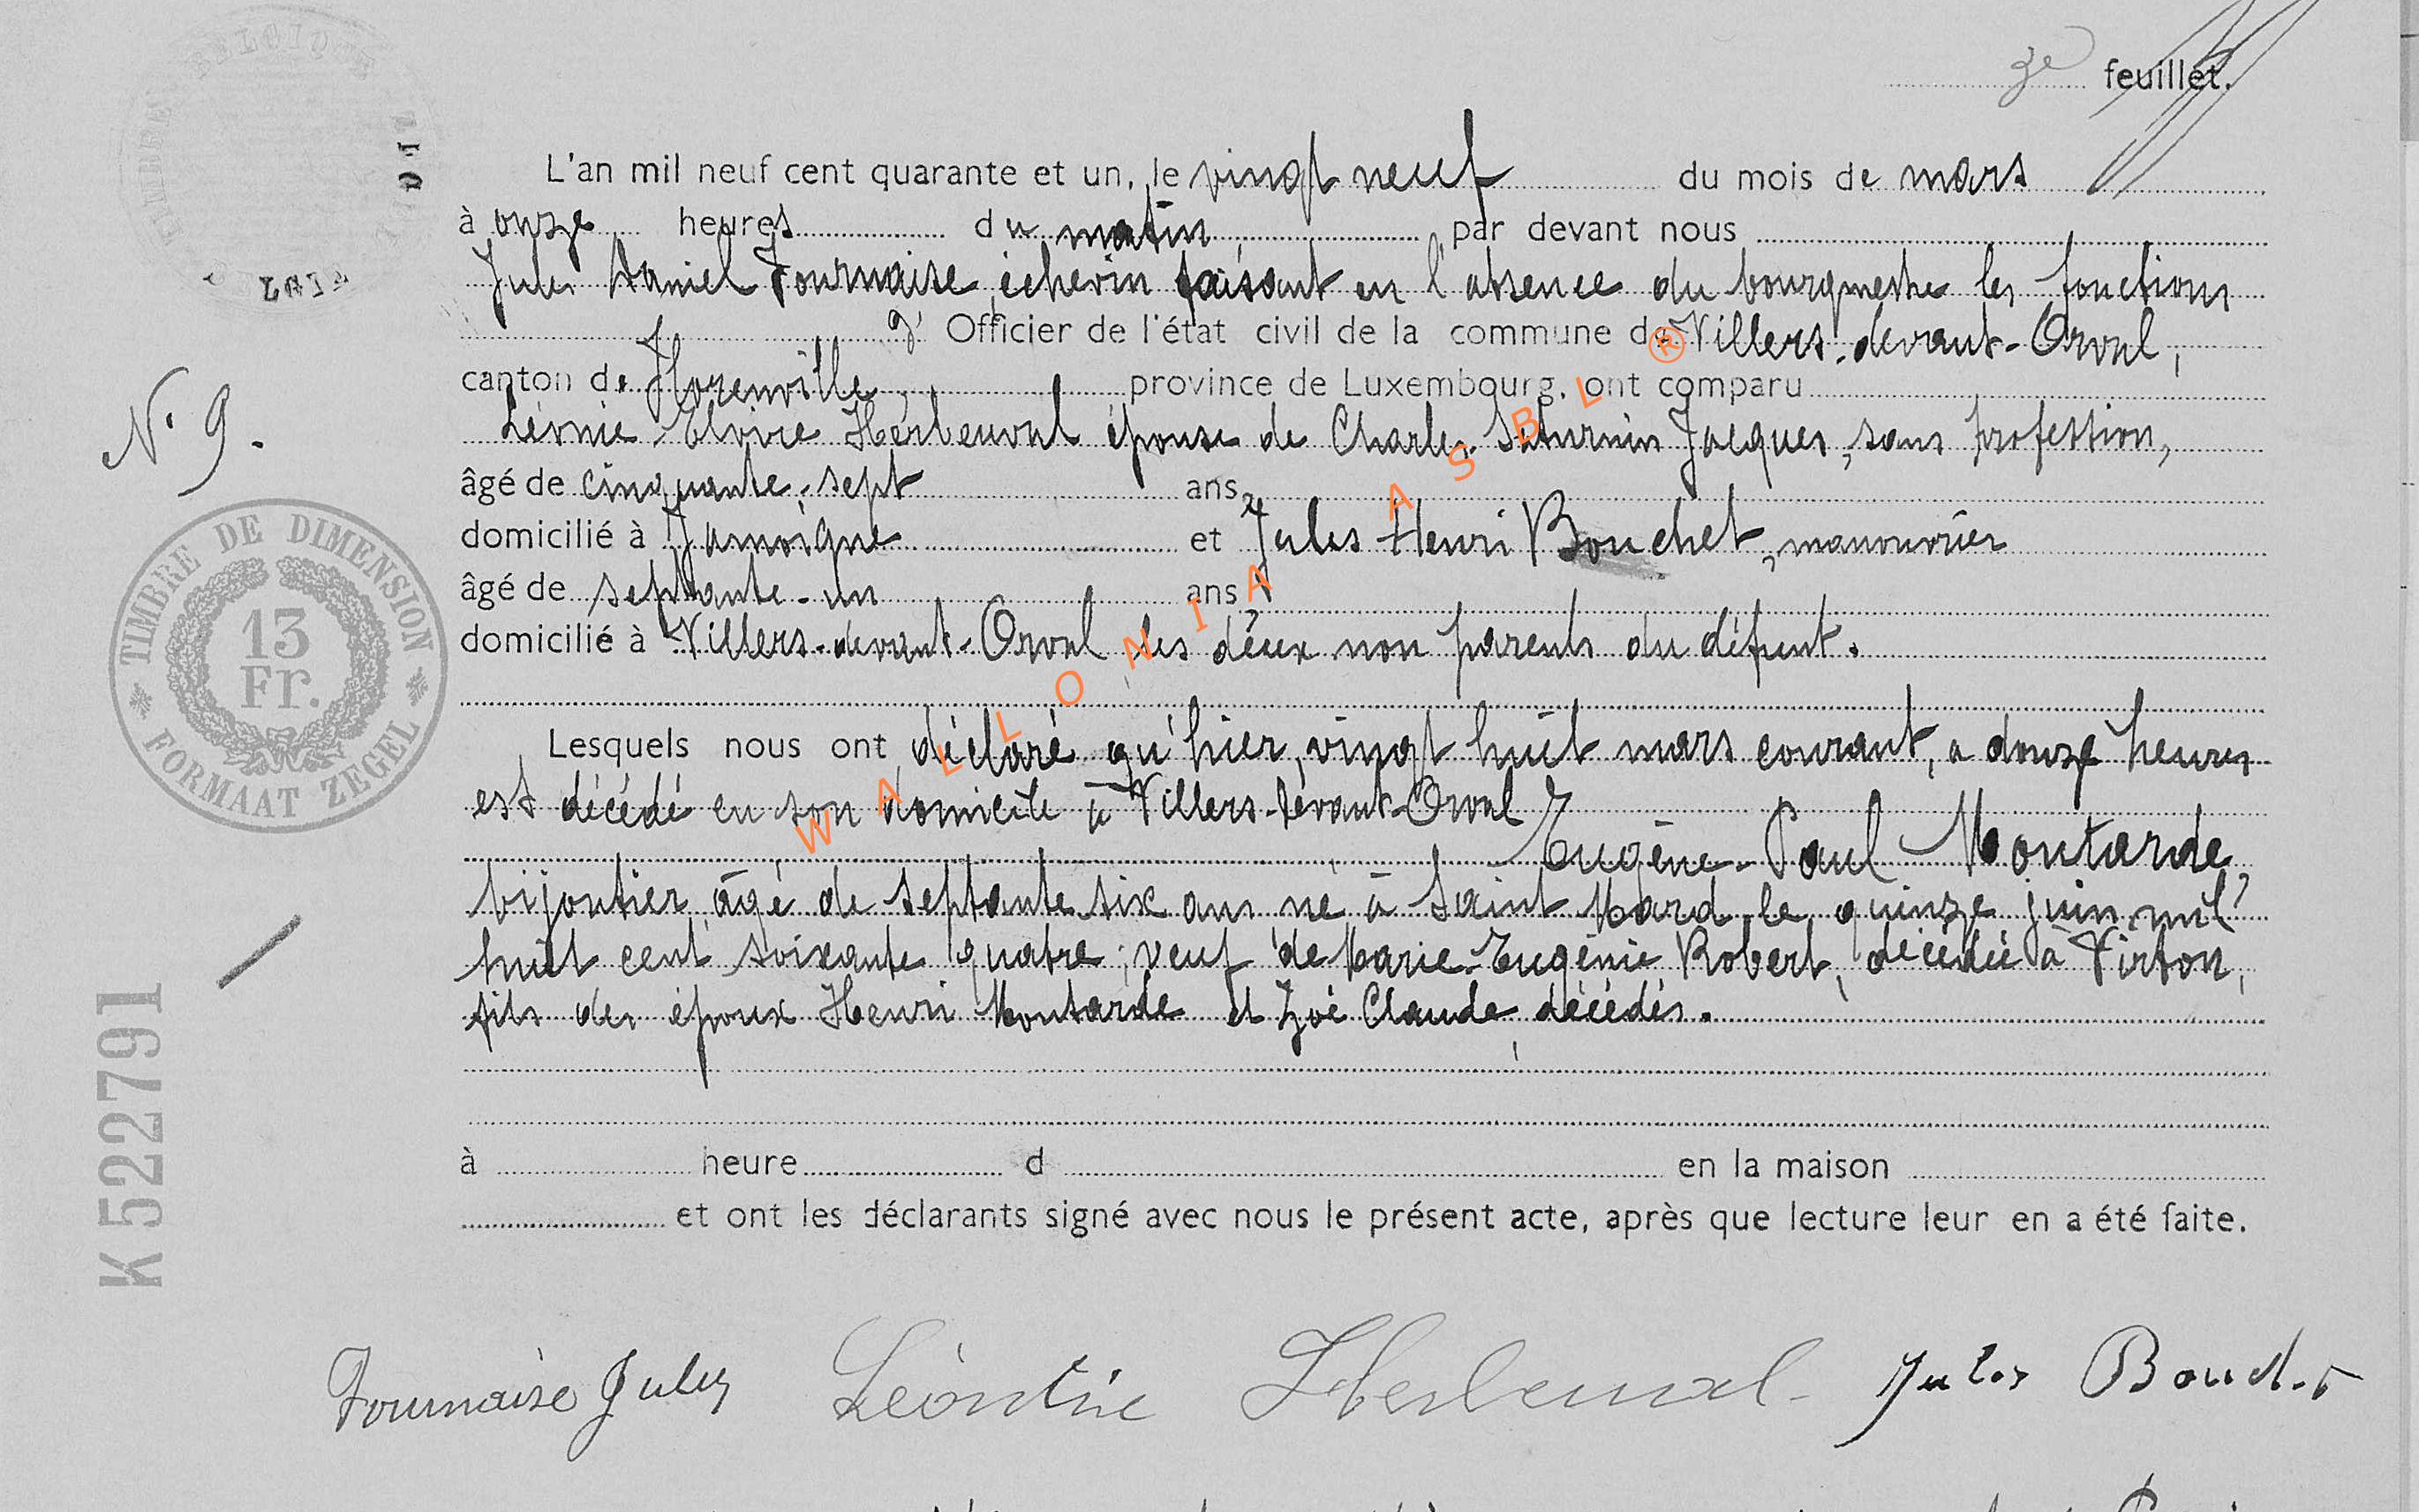 3e feuillet.
L'an mil neuf cent quarante et un, le vingt neuf du mois de mars
à onze heures du matin, par devant nous
Jules Daniel Fournaise, échevin faisant en l'absence du bourgmestre les fonctions
d' Officier de l'état civil de la commune de Villers-devant-Orval,
canton de Florenville province de Luxembourg, ont comparu
Léonie Elvire Herbeuval épouse de Charles Saturnin Jacques, sans profession,
N° 9.
âgé de cinquante-sept ans,
domicilié à Jamoigne et Jules Henri Bouchet, manouvrier
âgé de septante-un ans
domicilié à Villers-devant-Orval les deux non parents du défunt.
Lesquels nous ont déclaré qu'hier, vingt huit mars courant, à douze heures
est décédé en son domicile à Villers-devant-Orval
Eugène-Paul Moutarde,
bijoutier, âgé de septante six ans né à Saint Mard, le quinze juin mil
huit cent soixante quatre, veuf de Marie-Eugénie Robert, décédée à Virton,
fils des époux Henri Moutarde et Zoé Claude, décédés.
à heure d en la maison
et ont les déclarants signé avec nous le présent acte, après que lecture leur en a été faite.
Fournaise Jules Léontine Herbeuval Jules Bouchet
TIMBRE DE DIMENSION
13
Fr.
FORMAAT ZEGEL
K 522791
WALLONIA ASBL ®